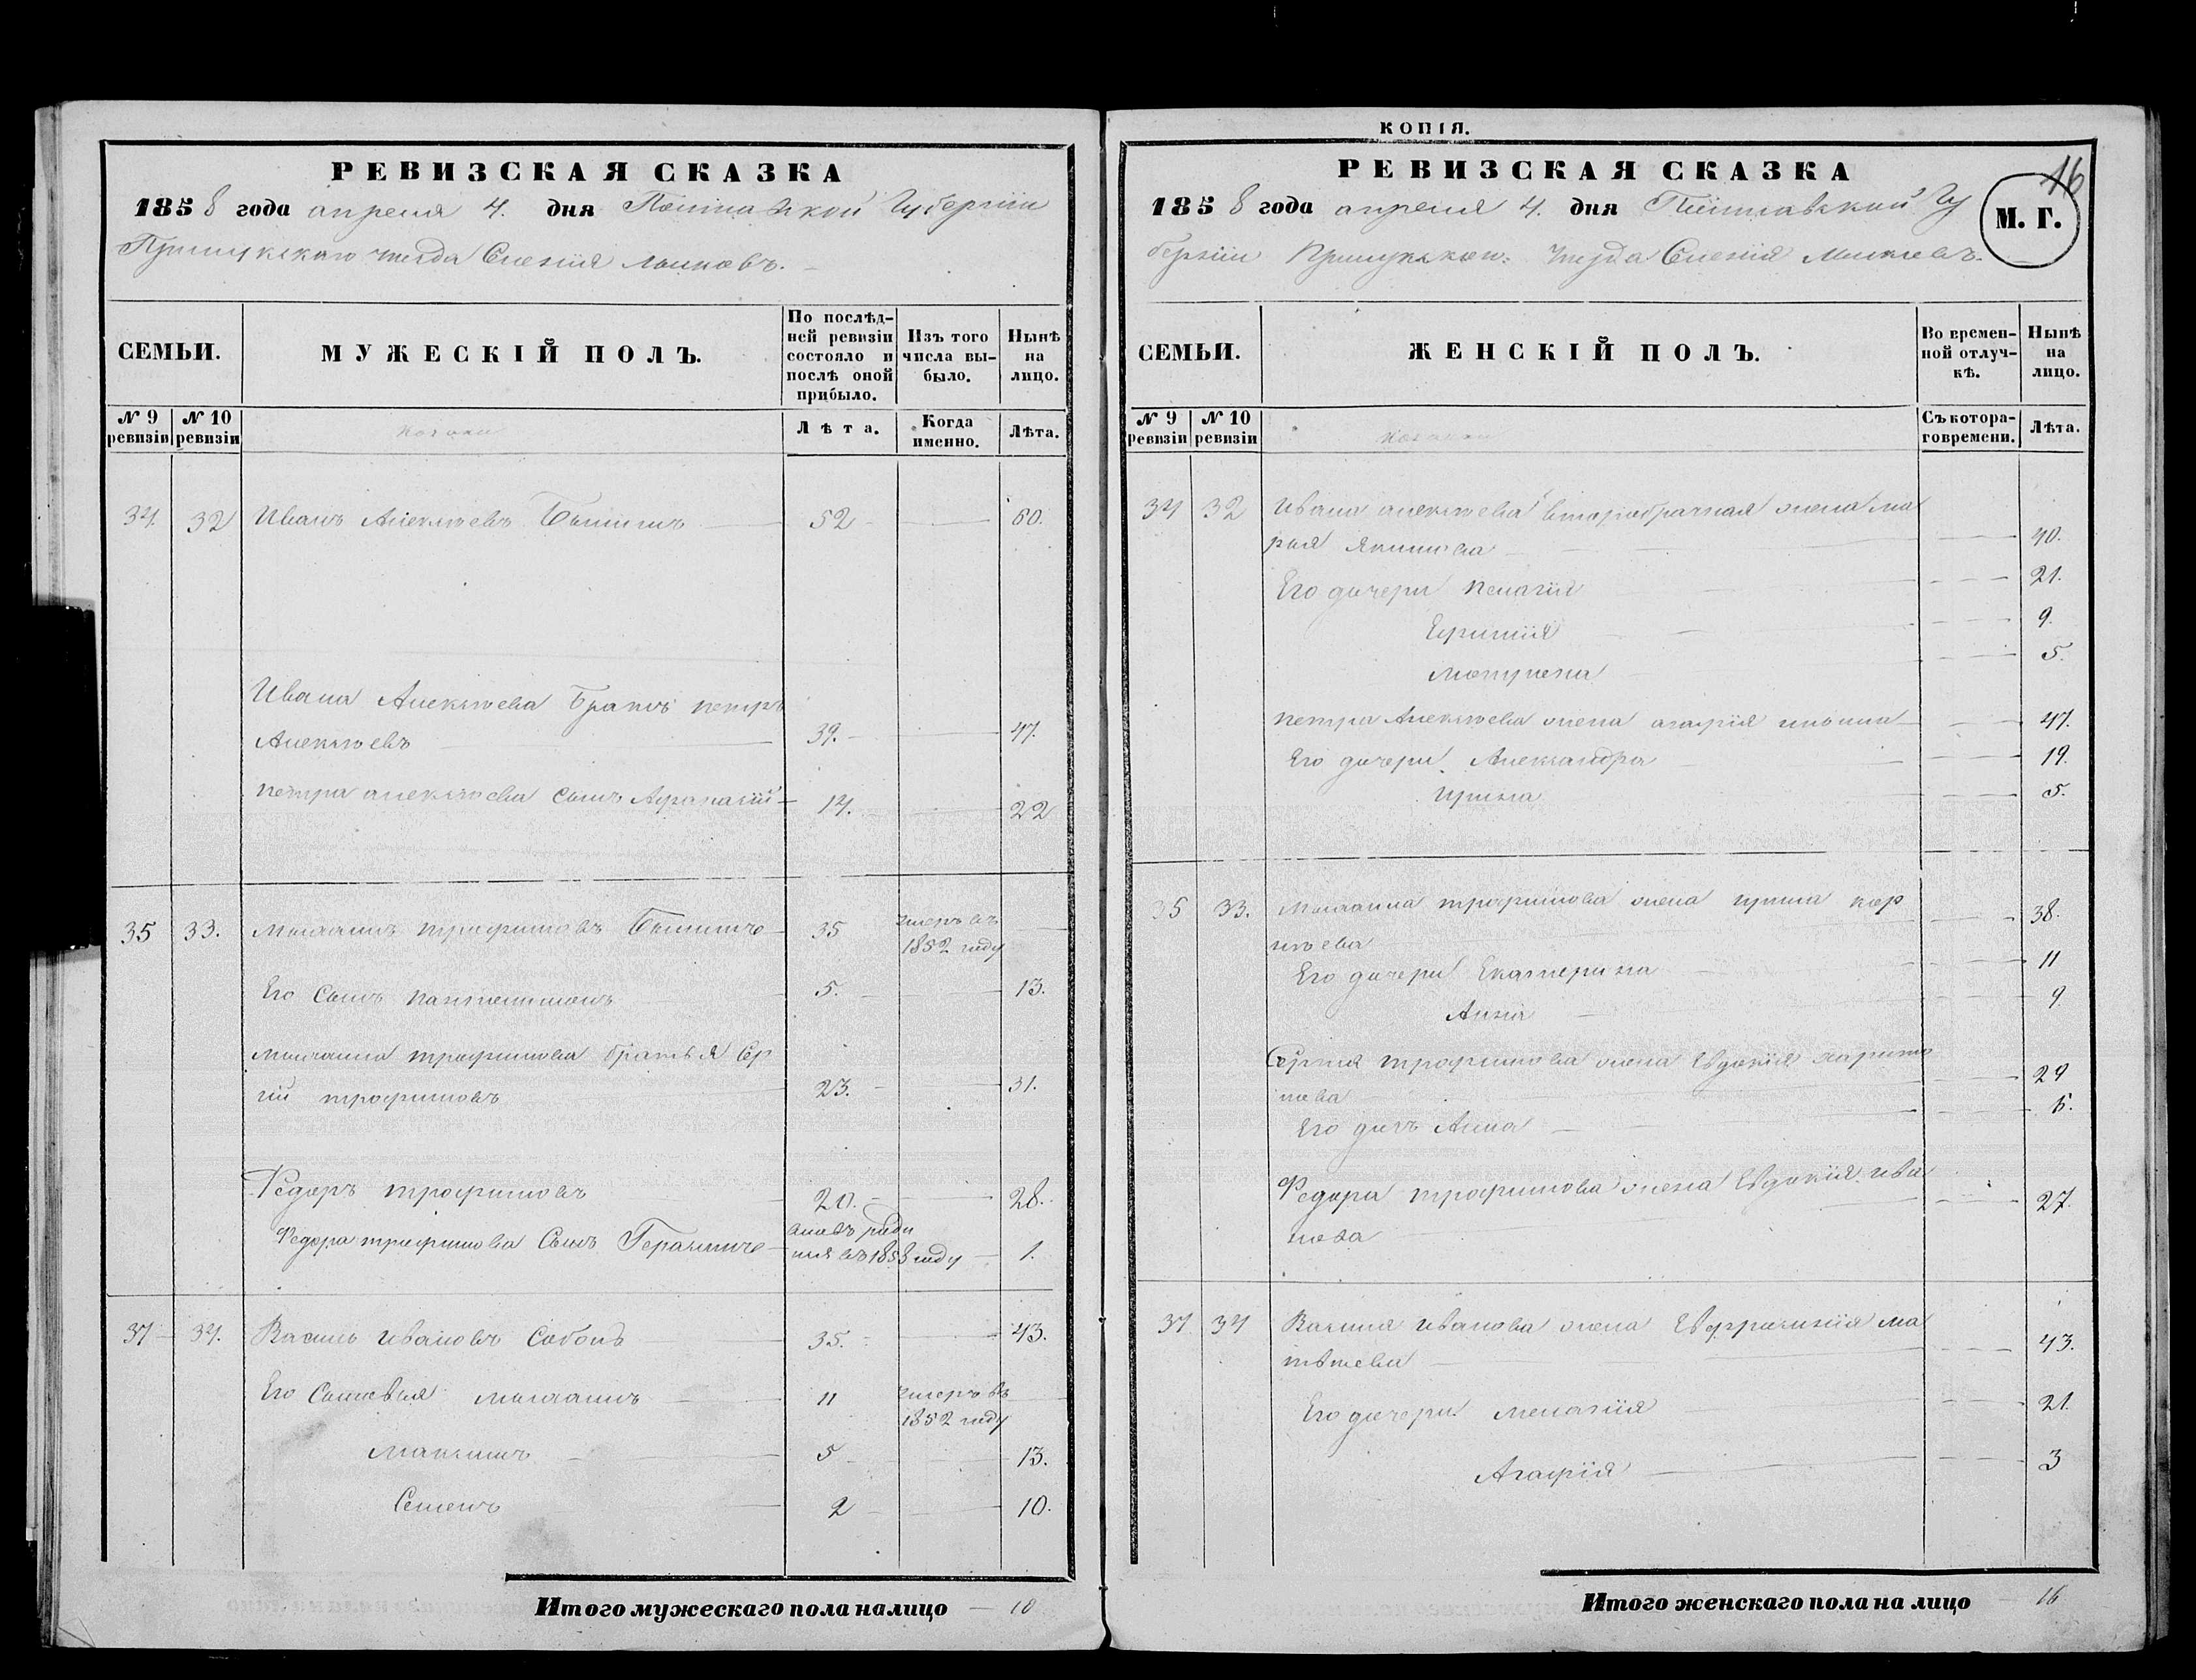 РЕВИЗСКАЯ СКАЗКА
1858 года апреля 4. дня Полтавской Губернии
Прилукскаго уезда Селенія
СЕМЬИ.
МУЖЕСКІЙ ПОЛЪ.
По послѣд-
ней ревизіи
состояло и
послѣ оной
прибыло.
Изъ того
числа вы-
было.
Нынѣ
на
лицо.
№ 9
ревизіи
№ 10
ревизіи
козаки
Лѣта.
Когда
именно.
Лѣта.
34. 32 Иванъ Алексѣевъ 52 60.
Ивана Алексѣева Братъ петръ
Алексѣевъ 39. 47.
петра алексѣева сынъ Афанасій 14. 22
35 33. Михаилъ трофимовъ 35 умеръ въ
1852 году
Его Сынъ пантелимонъ 5. 13.
Михаила трофимова братья Сер
гій трофимовъ 23. 31.
Федоръ трофимовъ 20. 28.
Федора трофимова Сынъ Герасимъ вновь роди
лся въ 1858 году 1.
37 34. Василь Ивановъ Соболь 35. 43.
Его Сыновья михаилъ 11 умеръ въ
1852 году
Максимъ 5 13.
Семенъ 2 10.
Итого мужескаго пола налицо 10
КОПІЯ.
РЕВИЗСКАЯ СКАЗКА
16
1858 года апреля 4. дня Полтавской Гу
М. Г.
берніи Прилукскаго уезда Селенія
СЕМЬИ.
ЖЕНСКІЙ ПОЛЪ.
Во времен-
ной отлуч-
кѣ.
Нынѣ
на
лицо.
№ 9
ревизіи
№ 10
ревизіи
козаки
Съ котора-
го времени.
Лѣта.
34 32 Ивана алексѣева второбрачная жена ма
рія якимова 40.
Его дочери пелагія 21.
9.
мотрона 5.
петра Алексѣева жена агафія 47.
Его дочери Александра 19.
Ирина 5.
35 33. Михаила трофимова жена ирина кор
нѣева 38.
Его дочери Екатерина 11
Анна 9.
Сергія трофимова жена Евдокія харито
нова 29
Его дочь Анна 5.
Федора трофимова жена Евдокія ива
нова 27.
37 34 Василія Иванова жена Евфросинія ма
твѣева 43.
Его дочери меланія 21.
Агафія 3
Итого женскаго пола на лицо 16